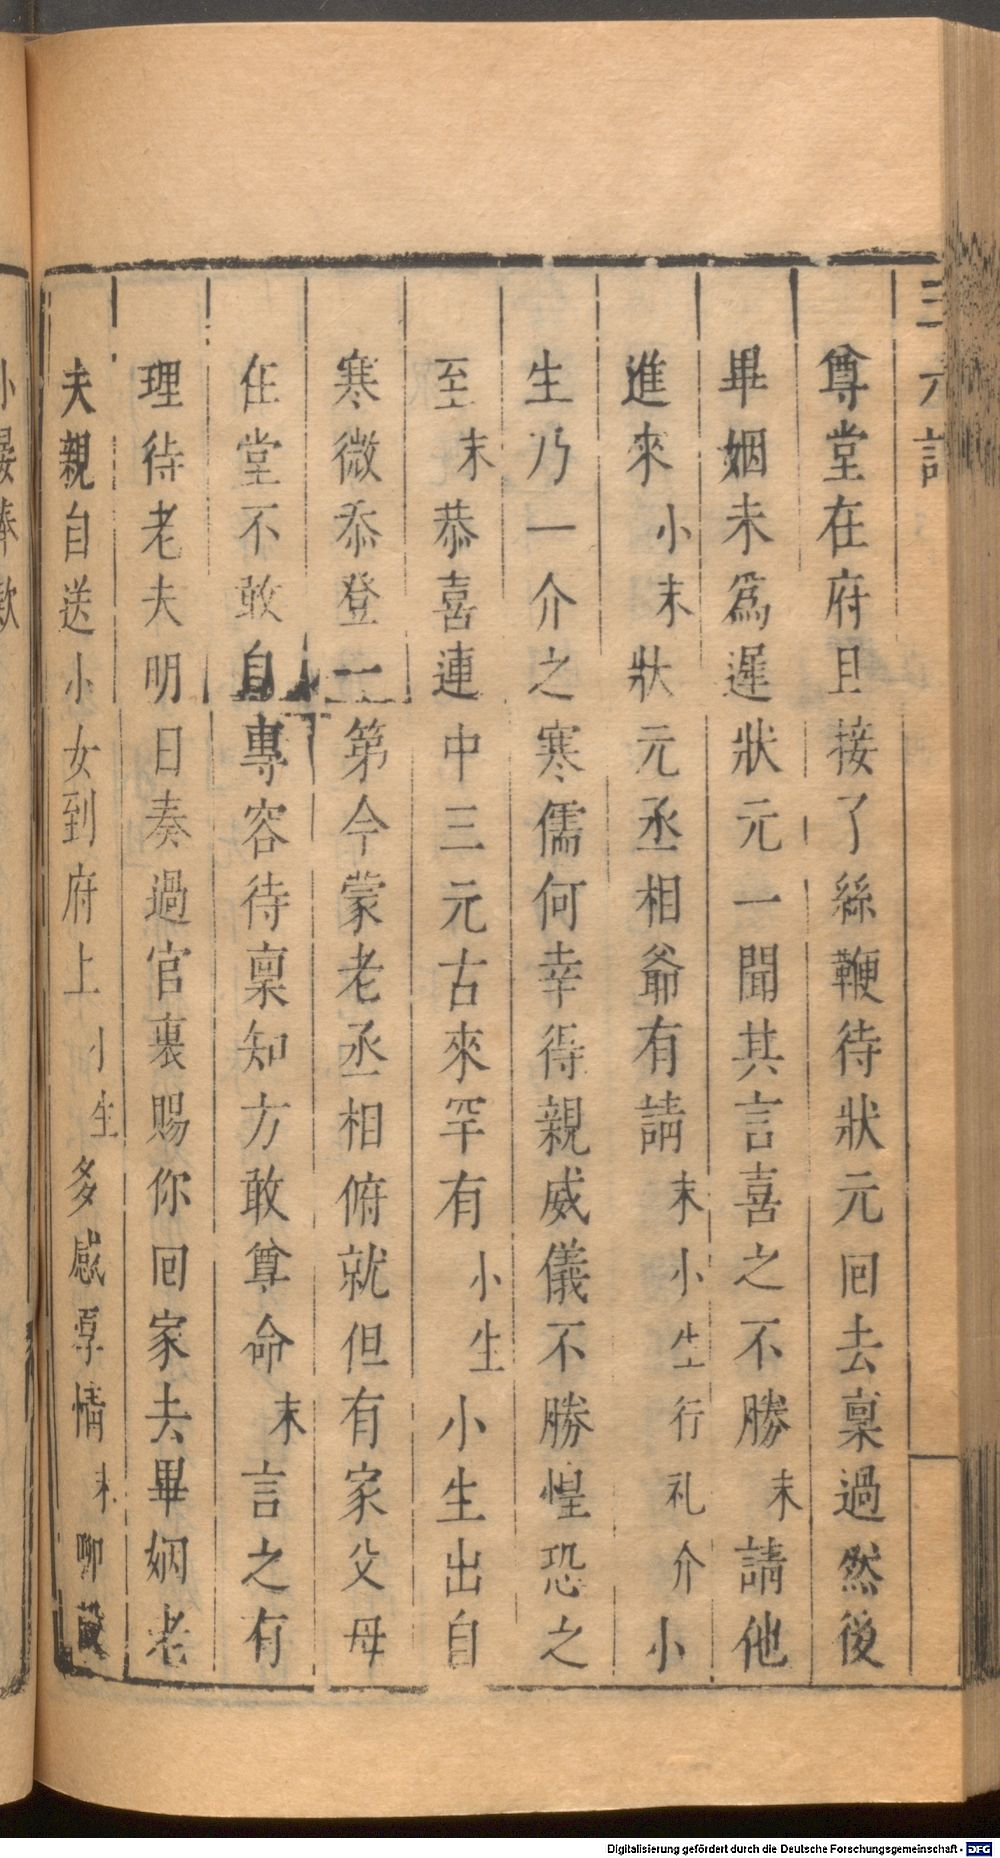 三元記
尊堂在府且接了絲鞭待狀元回去稟過然後
畢姻未爲遲狀元一聞其言喜之不勝末請他
進來小末狀元丞相爺有請末小生行礼介小
生乃一介之寒儒何幸得親威儀不勝惶恐之
至末恭喜連中三元古來罕有小生小生出自
寒微忝登一第今蒙老丞相俯就但有家父母
在堂不敢自專容待稟知方敢尊命末言之有
理待老夫明日奏過官裏賜你回家去畢姻老
夫親自送小女到府上小生多感厚情末聊
小
款
Digitalisierung gefördert durch die Deutsche Forschungsgemeinschaft - DFG